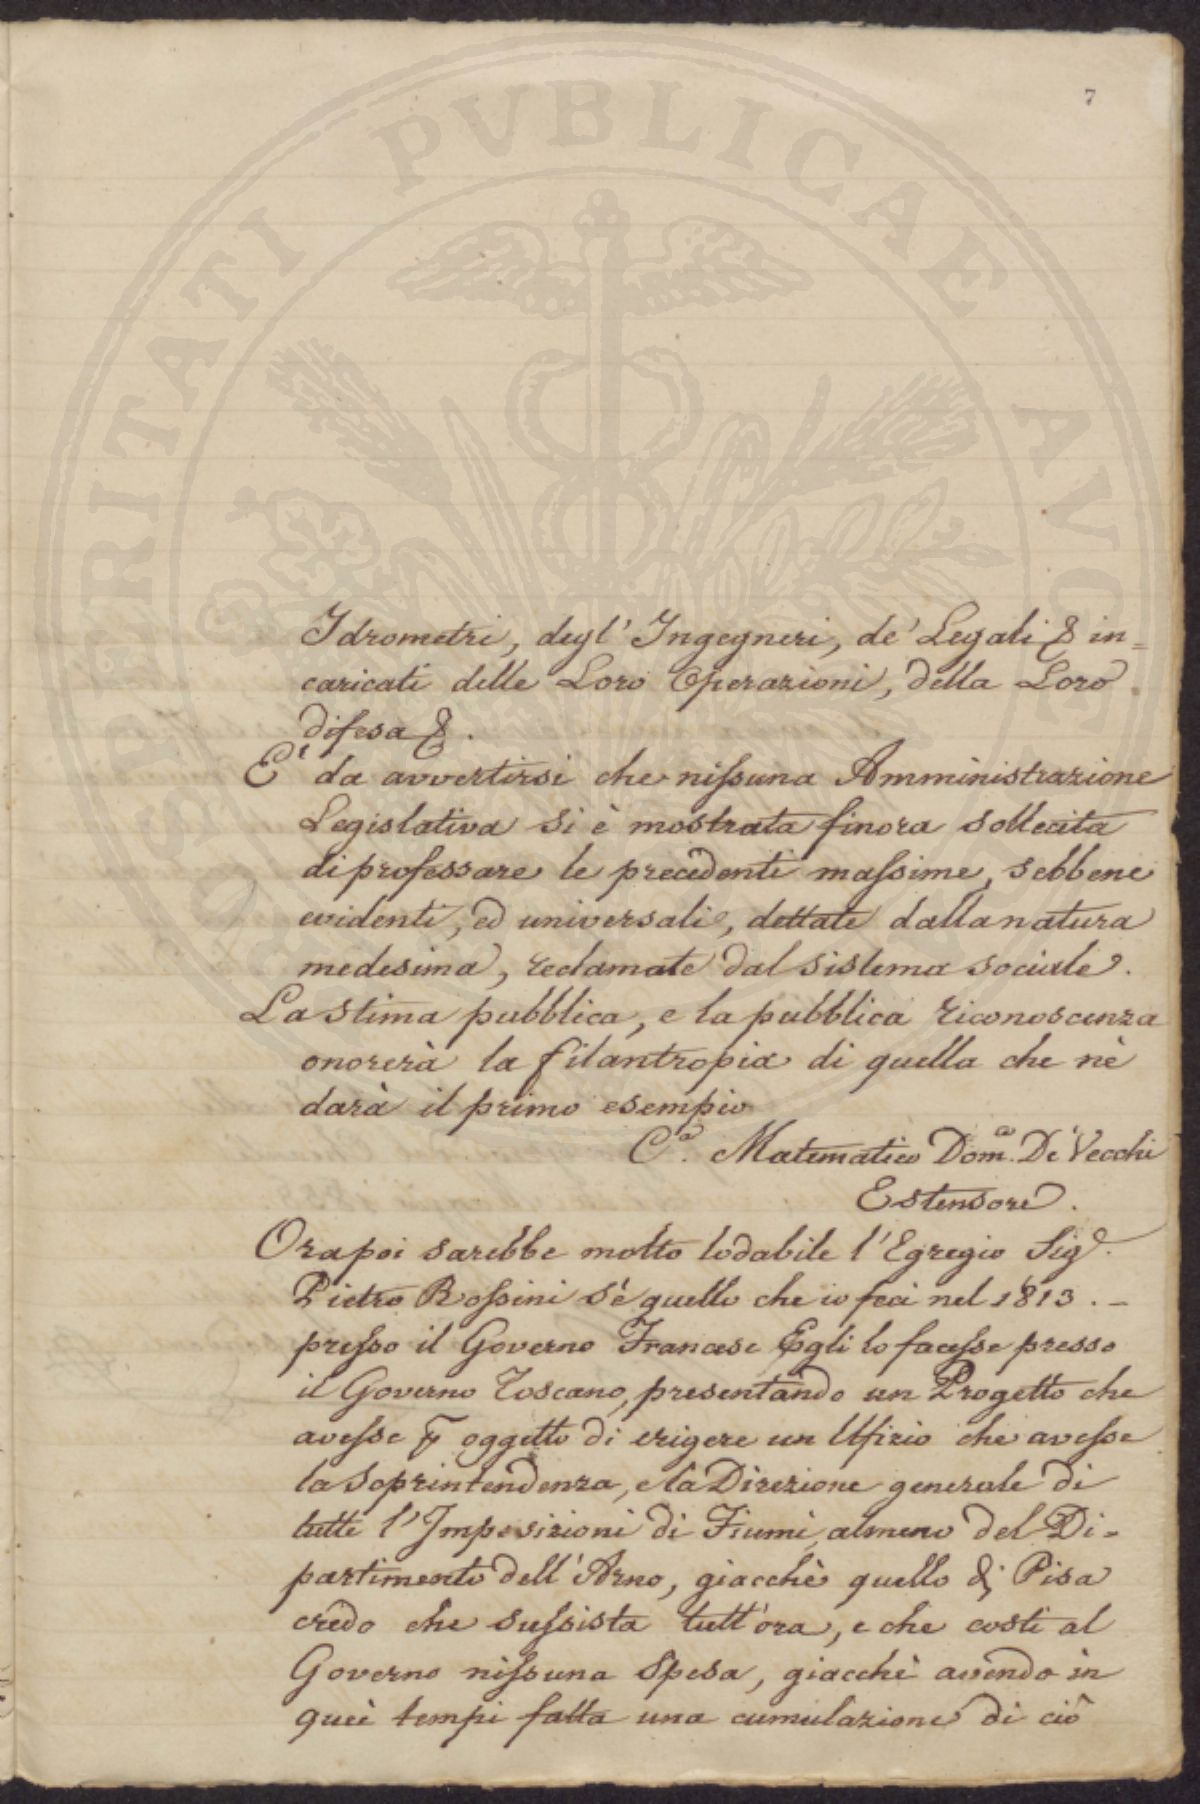 7
PROSPERITATI PVBLICAE AVGENDAE
Idrometri, degl' Ingegneri, de' Legali & in=
caricati delle Loro Operazioni, della Loro
difesa &.
E' da avvertirsi che nissuna Amministrazione
Legislativa si è mostrata finora sollecita
di professare le precedenti massime, sebbene
evidenti, ed universali, dettate dalla natura
medesima, reclamate dal sistema sociale.
La stima pubblica, e la pubblica riconoscenza
onorerà la filantropia di quella che nè
darà il primo esempio
C.a Matematico Dom.co De' Vecchi
Estensore.
Ora poi sarebbe molto lodabile l'Egregio Sig.e
Pietro Rossini s'è quello che io feci nel 1813. –
presso il Governo Francese Egli lo facesse presso
il Governo Toscano, presentando un Progetto che
avesse p oggetto di erigere un Ufizio che avesse
la Soprintendenza, e la Direzione generale di
tutte l'Imposizioni di Fiumi, almeno del Di-
partimento dell'Arno, giacchè quello di Pisa
credo che sussista tutt'ora, e che costi al
Governo nissuna spesa, giacchè avendo in
quei tempi fatta una cumulazione di ciò